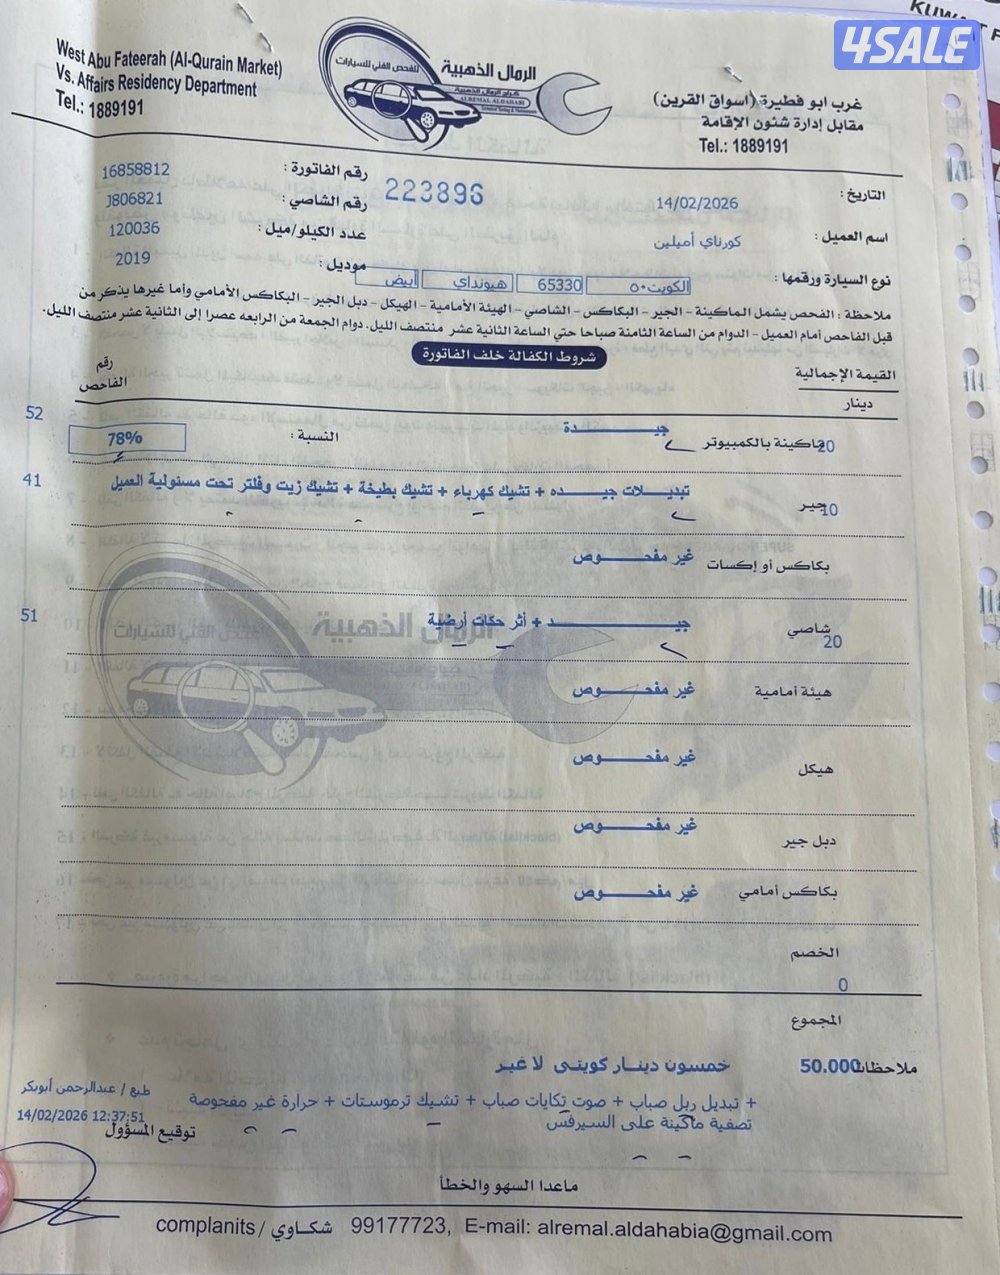 4SALE
West Abu Fateerah (Al-Qurain Market)
Vs. Affairs Residency Department
Tel.: 1889191
للفحص الفني للسيارات
الرمال الذهبية
كراج الرمال الذهبية
ALREMAL ALDAHABI
غرب ابو فطيرة (اسواق القرين)
مقابل إدارة شئون الإقامة
Tel.: 1889191
التاريخ : 14/02/2026
223896
رقم الفاتورة : 16858812
رقم الشاصي : J806821
اسم العميل : كورناي أميلين
عدد الكيلو/ميل : 120036
موديل : 2019
نوع السيارة ورقمها : الكويت٥٠ 65330 هيونداي أبيض
ملاحظة : الفحص يشمل الماكينة - الجير - البكاكس - الشاصي - الهيئة الأمامية - الهيكل - دبل الجير - البكاكس الأمامي وأما غيرها يذكر من
قبل الفاحص أمام العميل - الدوام من الساعة الثامنة صباحا حتي الساعة الثانية عشر منتصف الليل. دوام الجمعة من الرابعه عصرا إلى الثانية عشر منتصف الليل.
شروط الكفالة خلف الفاتورة
القيمة الإجمالية
دينار
رقم
الفاحص
ماكينة بالكمبيوتر 20 جيـــــدة النسبة : 78% 52
جير 10 تبديــلات جيــده + تشيك كهرباء + تشيك بطيخة + تشيك زيت وفلتر تحت مسئولية العميل 41
بكاكس أو إكسات غير مفحـــوص
شاصي 20 جيـــــد + أثر حكات أرضية 51
هيئة أمامية غير مفحـــوص
هيكل غير مفحـــوص
دبل جير غير مفحـــوص
بكاكس أمامي غير مفحـــوص
الخصم
0
المجموع
ملاحظات 50.000 خمسون دينـار كويتى لا غير
+ تبديل ربل صباب + صوت تكايات صباب + تشيك ترموستات + حرارة غير مفحوصة
تصفية ماكينة على السيرفس
طبع / عبدالرحمن أبوبكر
14/02/2026 12:37:51
توقيع المسؤول
ماعدا السهو والخطأ
complanits / شكاوي 99177723, E-mail: alremal.aldahabia@gmail.com